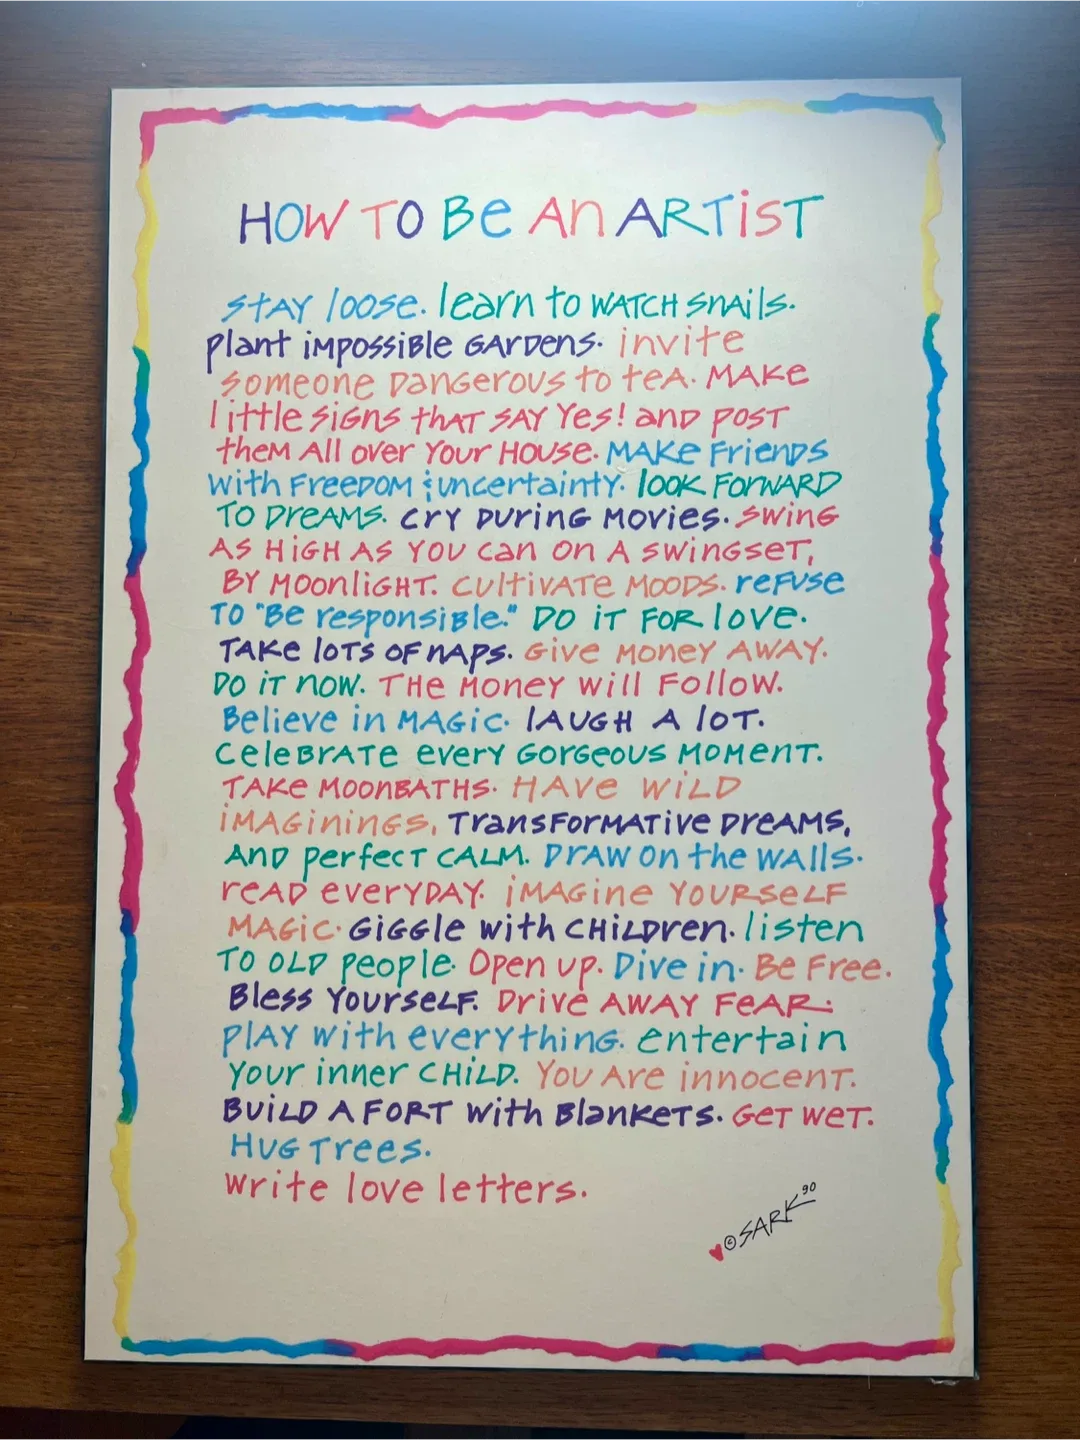 HOW TO Be An ARTiST
STAY loose. learn to WATCH snails.
plant iMPOSSiBle GArDens. invite
someone DAnGerous to teA. MAKe
little siGns tHAT SAY Yes! and post
theM All over Your House. MAKe Friends
with FreeDOM & uncertainty. look FORWARD
TO DreAMS. Cry DurinG Movies. Swing
AS HiGH AS YOU can on A swinGseT,
BY MoonliGHT. CultivATe MOODS. reFuse
TO "Be responsiBle." Do iT FOR love.
TAKe lOTS OF nAPS. Give Money AWAY.
DO iT now. THe Money will Follow.
Believe in MAGic. lAUGH A lOT.
CeleBrATe every GorGeous MoMenT.
TAKe MOONBATHS. HAve WiLD
iMAGininGs, TransForMATive DreAMS,
AnD perfecT CALM. DrAW on the WAlls.
reAD everyDAY. iMAGine YourseLF
MAGic. GiGGle with CHiLDren. listen
TO OLD people. Open up. Dive in. Be Free.
Bless YourselF. Drive AWAY FeAR.
plAY with everything. entertain
Your inner CHiLD. You Are innocenT.
BuiLD A FORT with BlAnKeTS. GeT WeT.
HuG Trees.
Write love letters.
© SARK 90